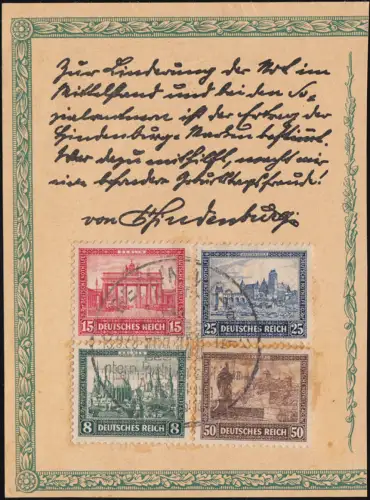 Zur Linderung der Not im
Mittelstand und bei den So-
zialrentnern ist der Ertrag der
Hindenburg-Marken bestimmt.
Wer dazu mithilft, macht mir
eine besondere Geburtstagsfreude!
von Hindenburg
BERLIN
15 DEUTSCHES REICH 15
25 DEUTSCHES REICH 25
8 DEUTSCHES REICH 8
50 DEUTSCHES REICH 50